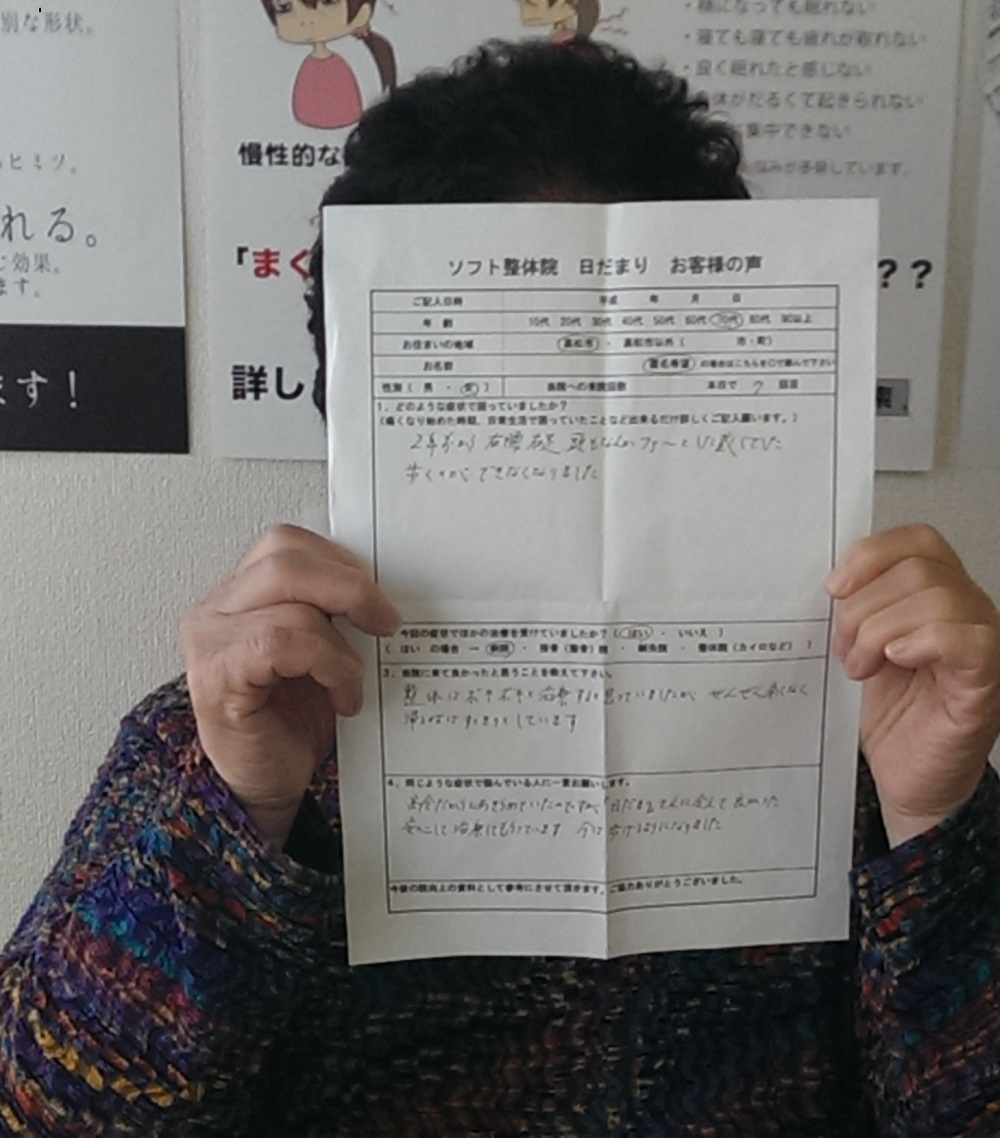 別な形状。
ヒミツ。
れる。
効果。
ます。
ます！
慢性的な
「まく
詳し
・横になっても眠れない
・寝ても寝ても疲れが取れない
・良く眠れたと感じない
体がだるくて起きられない
集中できない
悩みが多発しています。
？？
索
ソフト整体院　日だまり　お客様の声
ご記入日時　平成　年　月　日
年齢　10代　20代　30代　40代　50代　60代　70代　80代　90以上
お住まいの地域　高松市　・　高松市以外（　市・町）
お名前　匿名希望　の場合はこちらを〇で囲んで下さい
性別（　男　・　女　）　当院への来院回数　本日で　7　回目
1、どのような症状で困っていましたか？
（痛くなり始めた時期、日常生活で困っていたことなど出来るだけ詳しくご記入願います。）
2年前から　右腰　右足　頭もなんかファ〜といた感じでした
歩くのが　できなくなりました
今回の症状でほかの治療を受けていましたか？（　はい　・　いいえ　）
（　はい　の場合　→　病院　・　接骨（整骨）院　・　鍼灸院　・　整体院（カイロなど）　）
3、当院に来て良かったと思うことを教えて下さい。
整体はボキボキと治療すると思っていましたが　ぜんぜん痛くなく
帰りにはすっきりとしています
4、同じような症状で悩んでいる人に一言お願いします。
高令だからとあきらめていたのですが　日だまりさんに会えて良かった
安心して治療してもらっています　今は歩けるようになりました
今後の院向上の資料として参考にさせて頂きます。ご協力ありがとうございました。